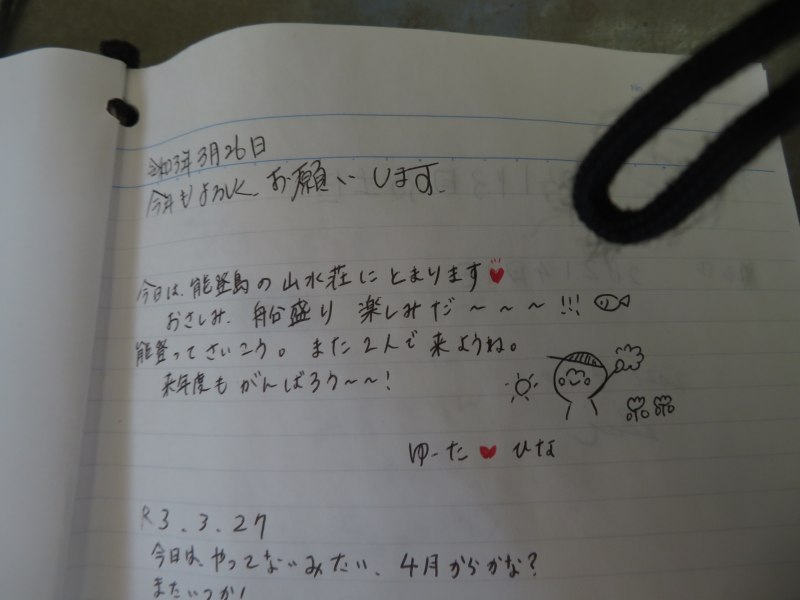 令和3年3月26日
今年もよろしく、お願いします。
今日は、能登島の山水荘にとまります
おさしみ、舟盛り 楽しみだ〜〜〜!!!
能登ってさいこう。また2人で来ようね。
来年度もがんばろう〜〜!
ゆーた ひな
R3.3.27
今日は、やってないみたい、4月からかな?
またいつか!